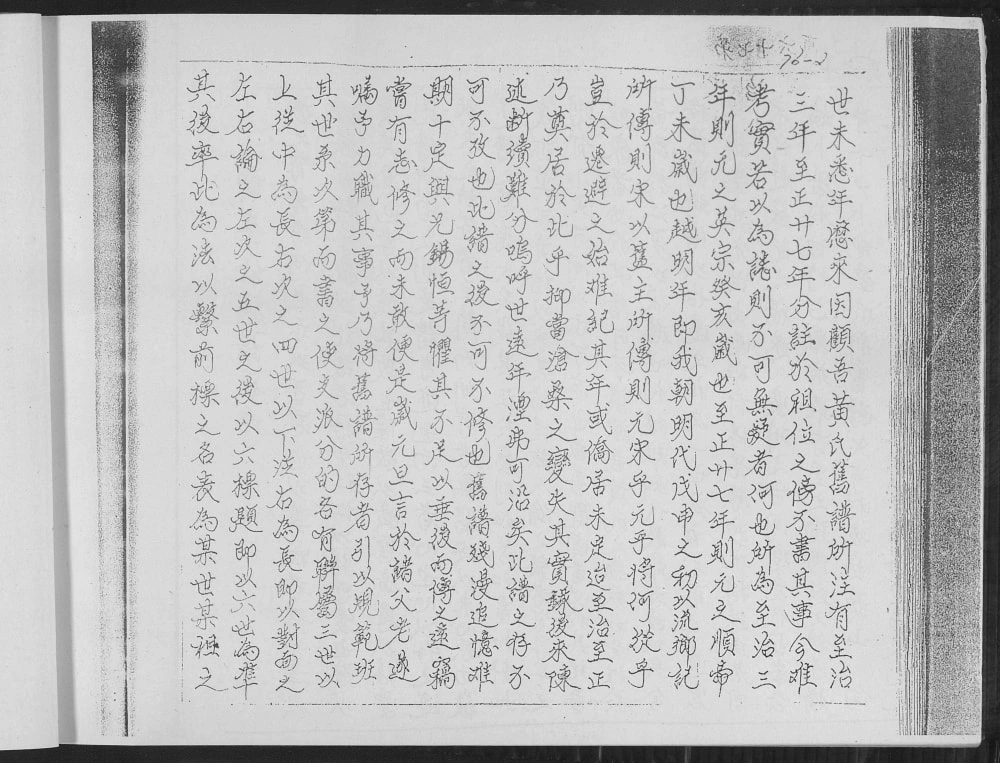 76-2
世未悉年歷來因顧吾黃氏舊譜所注有至治
三年至正廿七年分註於祖位之傍不書其事今难
考實若以為誌則不可無疑者何也所為至治三
年則元之英宗癸亥歲也至正廿七年則元之順帝
丁未歲也越明年即我朝明代戊申之初以流鄉記
所傳則宋以舊主所傳則元宋乎元乎將何從乎
豈於遷避之始难記其年或僑居未定迨至治至正
乃奠居於此乎抑當滄桑之變失其實錄後來陳
述断續難分嗚呼世遠年湮弗可沿矣此譜之存不
可不攷也此譜之後不可不修也舊譜殘漫追憶难
期十定與兄錫恒等懼其不足以垂後而傳之遠竊
嘗有志修之而未敢便是歲元旦言於諸父老遂
囑予力職其事予乃將舊譜所存者引以規範班
其世系次第而書之使支派分的各有聯屬三世以
上從中為長右次之四世以下注右為長即以對面之
左右論之左次之五世之後以六標題即以六世為準
其後率此為法以繫前標之名表為某世某種之